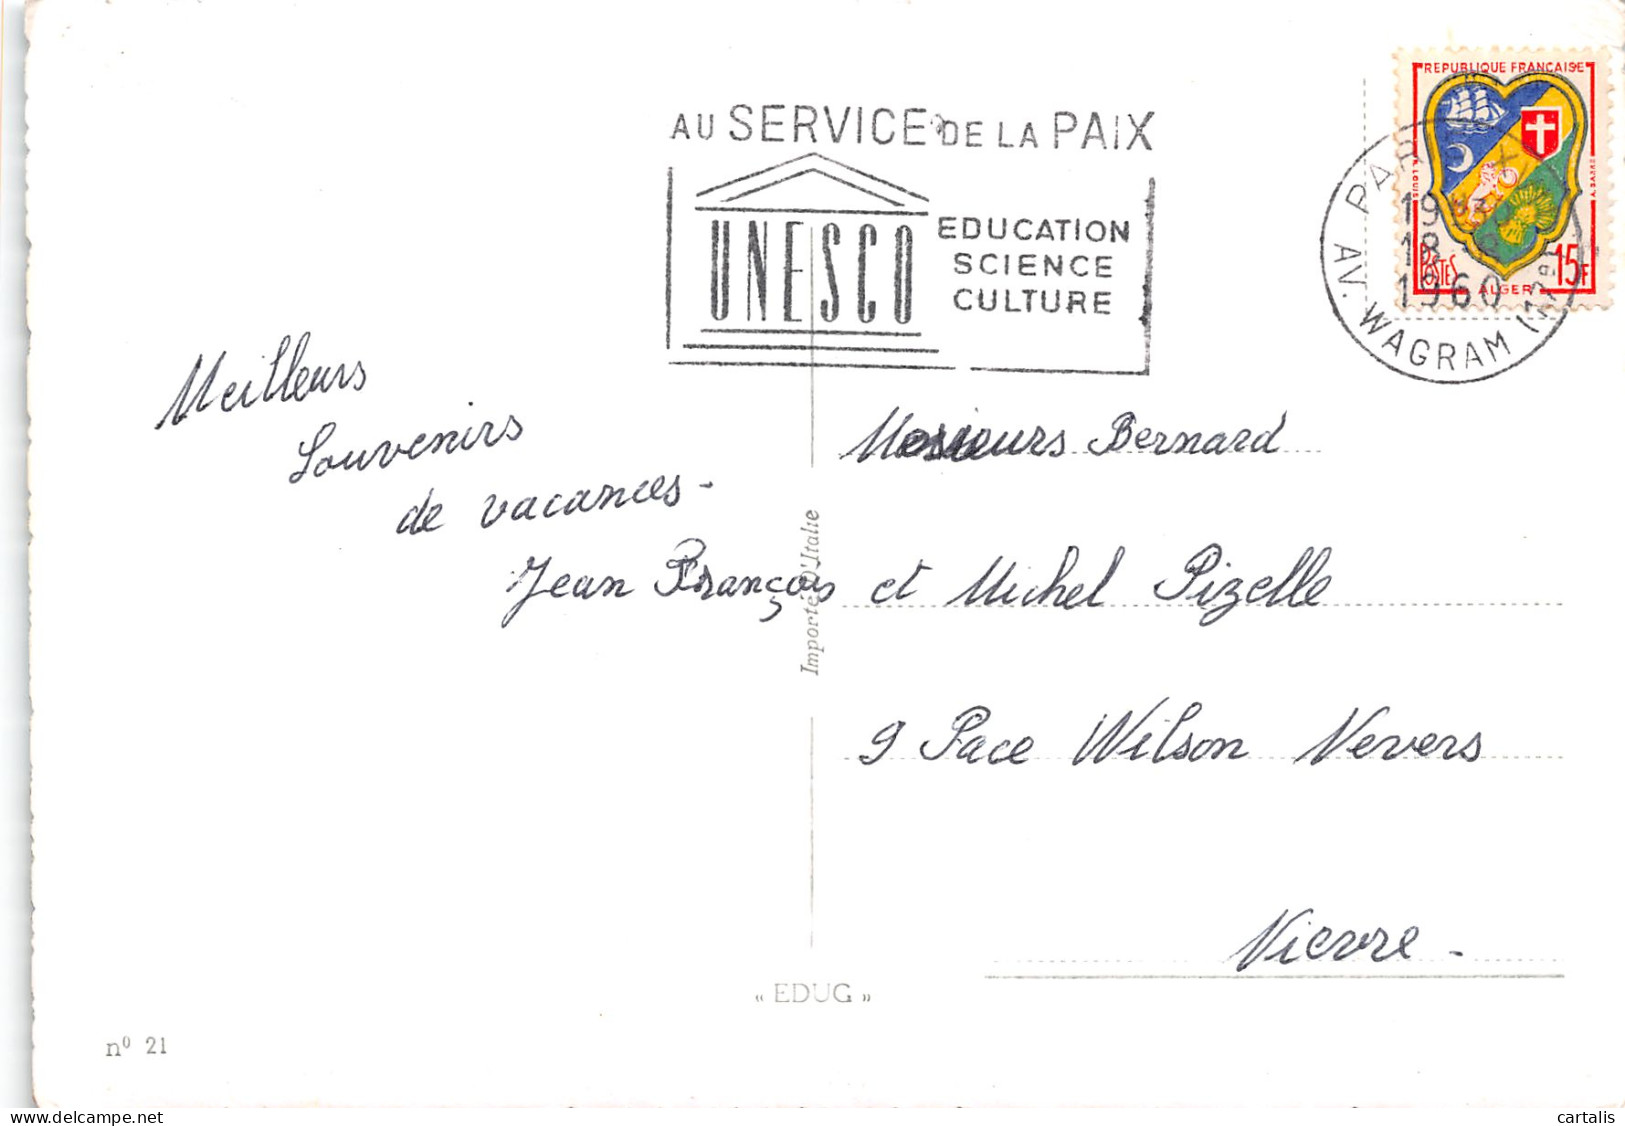 AU SERVICE DE LA PAIX
UNESCO
EDUCATION
SCIENCE
CULTURE
REPUBLIQUE FRANÇAISE
POSTES
ALGER
15F
PARIS X
19
18
1960
AV. WAGRAM (17e)
Meilleurs
Souvenirs
de vacances -
Jean François
Messieurs Bernard
et Michel Pizelle
9 Pace Wilson Nevers
Nievre -
Importé d'Italie
« EDUG »
nº 21
delcampe.net
cartalis